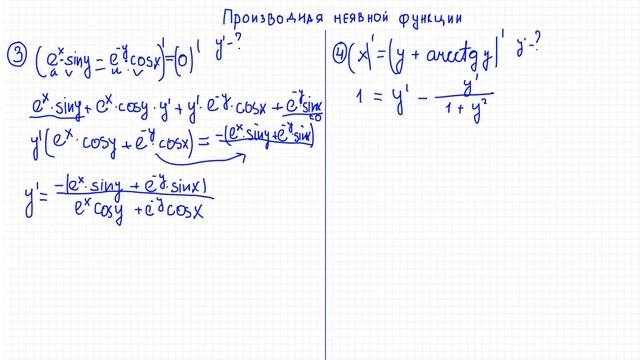 Производная неявной функции
③ (eˣ·siny − e⁻ʸ·cosx)' = (0)' y'-?
u v u v
eˣ·siny + eˣ·cosy·y' + y'·e⁻ʸ·cosx + e⁻ʸsinx = 0
y'(eˣ·cosy + e⁻ʸ·cosx) = −(eˣ·siny + e⁻ʸsinx)
y' = −(eˣ·siny + e⁻ʸ·sinx) / eˣcosy + e⁻ʸcosx
④ (x)' = (y + arcctg y)' y'-?
1 = y' − y' / 1 + y²